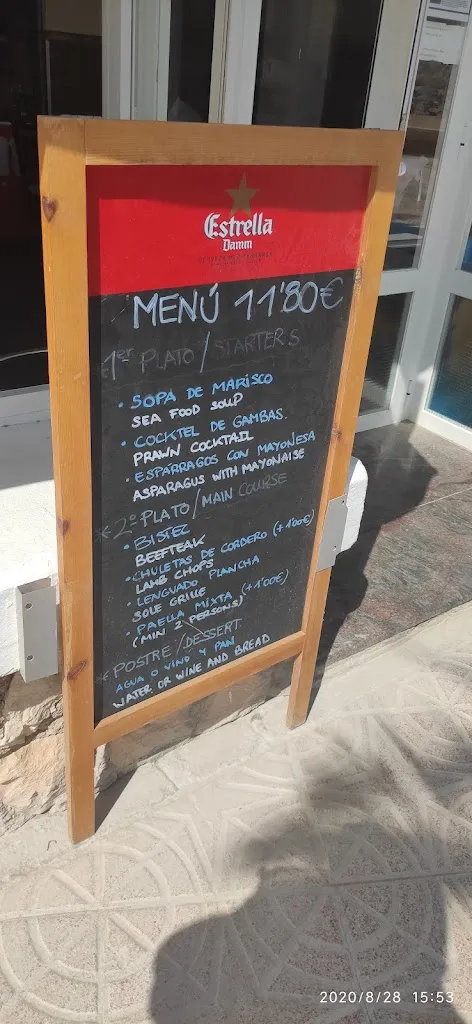 Estrella
Damm
MENÚ 11'80€
1er PLATO / STARTERS
· SOPA DE MARISCO
SEA FOOD SOUP
· COCKTEL DE GAMBAS.
PRAWN COCKTAIL
· ESPARRAGOS CON MAYONESA
ASPARAGUS WITH MAYONAISE
2º PLATO / MAIN COURSE
· BISTEC
BEEFTEAK
· CHULETAS DE CORDERO (+ 1'00€)
LAMB CHOPS
· LENGUADO PLANCHA
SOLE GRILLE
· PAELLA MIXTA (+1'00€)
(MIN 2 PERSONS)
POSTRE / DESSERT
AGUA O VINO Y PAN
WATER OR WINE AND BREAD
2020/8/28 15:53